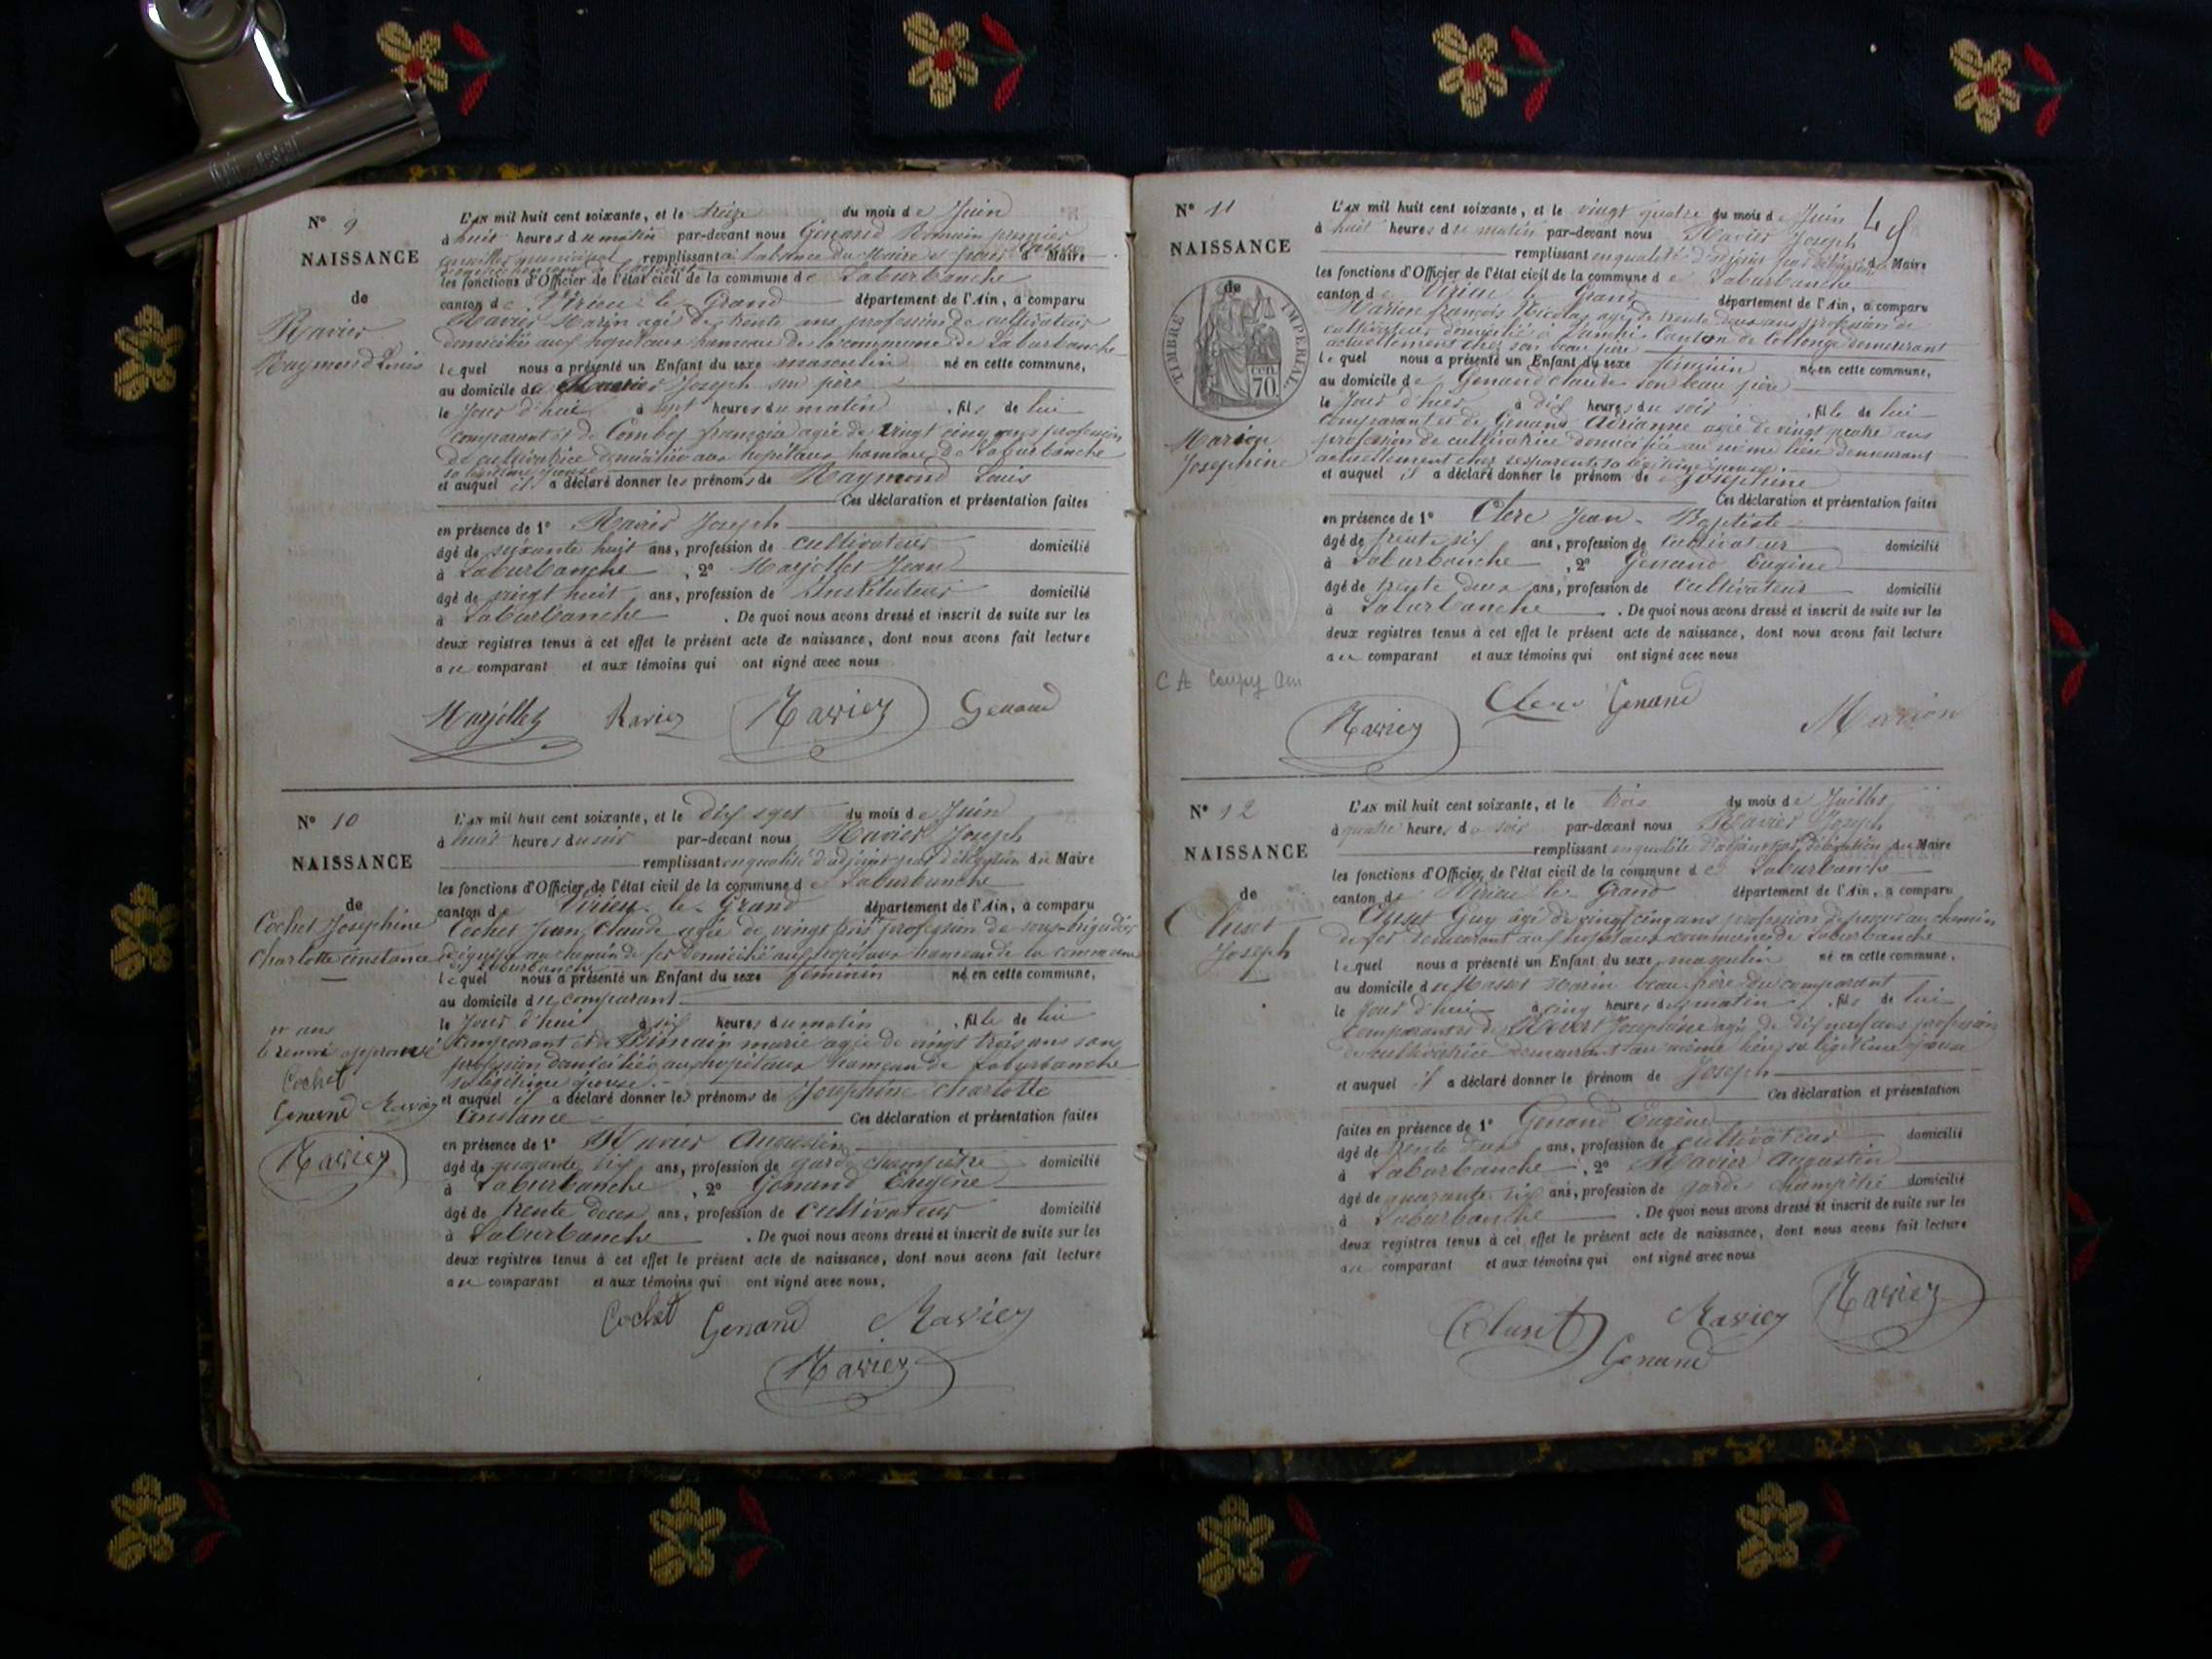 N° 9
NAISSANCE
de
Ravier
Raymond Louis
L'AN mil huit cent soixante, et le treize du mois de Juin
à huit heures du matin par-devant nous Genand Romain premier
conseiller municipal remplissant à l'absence du Maire et pour d Maire
les fonctions d'Officier de l'état civil de la commune de Laburbanche
canton de Virieu le Grand département de l'Ain, a comparu
Ravier Marin agé de trente ans profession de cultivateur
domicilié aux hopitaux hameau de la commune de Laburbanche
lequel nous a présenté un Enfant du sexe masculin né en cette commune,
au domicile de Joseph son père
le Jour d'hui à sept heures du matin, fils de lui
comparant et de Combet françoise agée de vingt cinq ans profession
de cultivatrice domiciliée aux hopitaux hameau de Laburbanche
et auquel il a déclaré donner les prénoms de Raymond Louis
Ces déclaration et présentation faites
en présence de 1° Ravier Joseph
âgé de soixante huit ans, profession de cultivateur domicilié
à Laburbanche, 2° Marjollet Jean
âgé de vingt huit ans, profession de Instituteur domicilié
à Laburbanche. De quoi nous avons dressé et inscrit de suite sur les
deux registres tenus à cet effet le présent acte de naissance, dont nous avons fait lecture
au comparant et aux témoins qui ont signé avec nous
Marjollet Ravier Ravier Genand
N° 10
NAISSANCE
de
Cochet Josephine
Charlotte Constance
ans
renvoi approuvé
Cochet
Genand Ravier
Ravier
L'AN mil huit cent soixante, et le dix sept du mois de Juin
à huit heures du soir par-devant nous Ravier Joseph
remplissant en qualité d'adjoint par délégation du Maire
les fonctions d'Officier de l'état civil de la commune de Laburbanche
canton de Virieu le Grand département de l'Ain, a comparu
Cochet Jean Claude agé de vingt profession de sous-brigadier
d'équipe au chemin de fer domicilié aux hopitaux hameau de la commune
de Laburbanche
lequel nous a présenté un Enfant du sexe feminin né en cette commune,
au domicile du comparant
le Jour d'hui à six heures du matin, fille de lui
comparant et de marie agée de vingt trois ans sans
profession domiciliée aux hopitaux hameau de Laburbanche
sa légitime épouse.
et auquel il a déclaré donner les prénoms de Josephine Charlotte
Constance Ces déclaration et présentation faites
en présence de 1° Ravier Augustin
âgé de quarante six ans, profession de garde champêtre domicilié
à Laburbanche, 2° Genand Eugène
âgé de trente deux ans, profession de cultivateur domicilié
à Laburbanche. De quoi nous avons dressé et inscrit de suite sur les
deux registres tenus à cet effet le présent acte de naissance, dont nous avons fait lecture
au comparant et aux témoins qui ont signé avec nous.
Cochet Genand Ravier
Ravier
N° 11
NAISSANCE
de
TIMBRE IMPERIAL
CEN. 70
Marion
Josephine
L'AN mil huit cent soixante, et le vingt quatre du mois de Juin
à huit heures du matin par-devant nous Ravier Joseph
remplissant en qualité d'adjoint par délégation d Maire
les fonctions d'Officier de l'état civil de la commune de Laburbanche
canton de Virieu le Grand département de l'Ain, a comparu
Marion françois Nicolas agé de trente deux ans profession de
cultivateur domicilié à canton de demeurant
actuellement chez son beau père
lequel nous a présenté un Enfant du sexe feminin né en cette commune,
au domicile de Genand Claude son beau père
le Jour d'hier à dix heures du soir, fille de lui
comparant et de Genand Adrianne agée de vingt quatre ans
profession de cultivatrice domiciliée au même lieu demeurant
actuellement chez ses parents sa légitime épouse.
et auquel il a déclaré donner le prénom de Josephine
Ces déclaration et présentation faites
en présence de 1° Clerc Jean-Baptiste
âgé de trente six ans, profession de Cultivateur domicilié
à Laburbanche, 2° Genand Eugène
âgé de trente deux ans, profession de Cultivateur domicilié
à Laburbanche. De quoi nous avons dressé et inscrit de suite sur les
deux registres tenus à cet effet le présent acte de naissance, dont nous avons fait lecture
au comparant et aux témoins qui ont signé avec nous
Ravier Clerc Genand Marion
N° 12
NAISSANCE
de
Cluset
Joseph
L'AN mil huit cent soixante, et le trois du mois de Juillet
à quatre heures du soir par-devant nous Ravier Joseph
remplissant en qualité d'adjoint par délégation du Maire
les fonctions d'Officier de l'état civil de la commune de Laburbanche
canton de Virieu le Grand département de l'Ain, a comparu
Cluset Guy agé de vingt cinq ans profession de au chemin
de fer demeurant aux hopitaux commune de Laburbanche
lequel nous a présenté un Enfant du sexe masculin né en cette commune,
au domicile de Marin beau frère du comparant
le Jour d'hui à cinq heures du matin, fils de lui
comparant et de Josephine agée de dix neuf ans profession
de cultivatrice demeurant au même lieu sa légitime épouse
et auquel il a déclaré donner le prénom de Joseph
Ces déclaration et présentation
faites en présence de 1° Genand Eugène
âgé de trente deux ans, profession de cultivateur domicilié
à Laburbanche, 2° Ravier Augustin
âgé de quarante six ans, profession de garde champêtre domicilié
à Laburbanche. De quoi nous avons dressé et inscrit de suite sur les
deux registres tenus à cet effet le présent acte de naissance, dont nous avons fait lecture
au comparant et aux témoins qui ont signé avec nous
Cluset Ravier Ravier
Genand